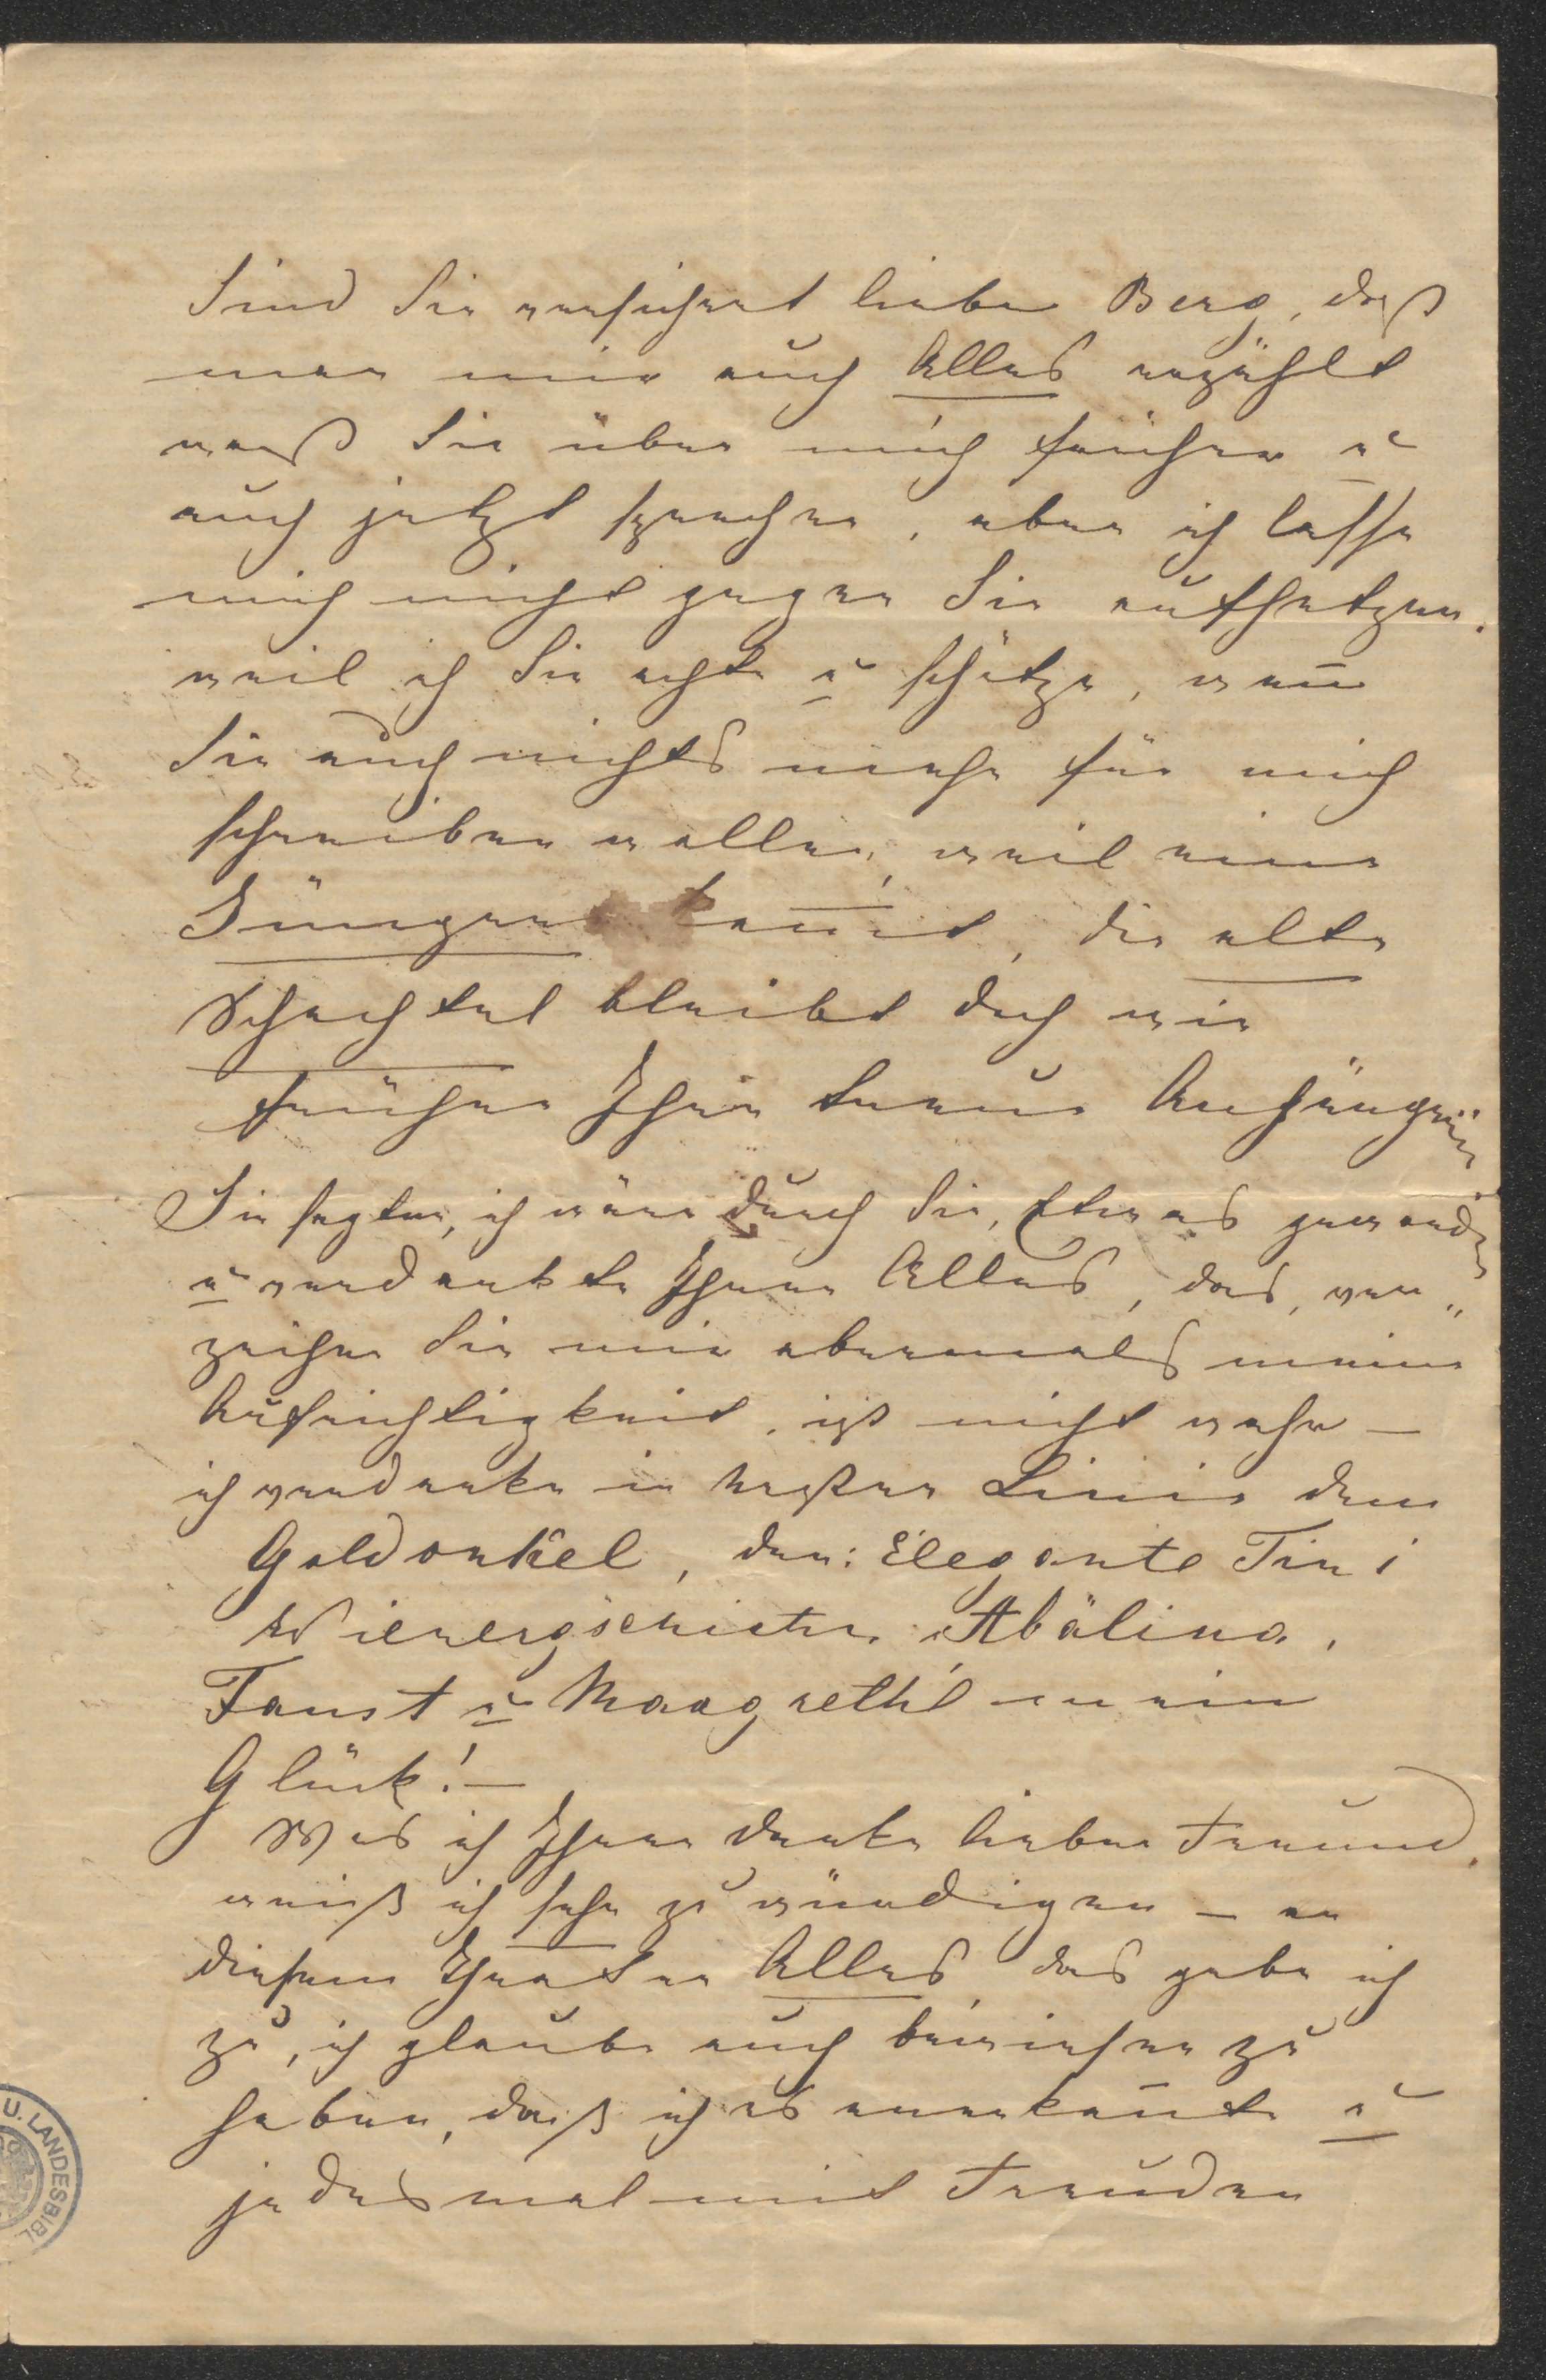 Sind Sie versichert lieber Berg, daß
man mir auch Alles erzählt
waß Sie über mich früher u
auch jetzt sprechen, aber ich lasse
mich nicht gegen Sie aufhetzen.
weil ich Sie achte u schätze, wen̄
Sie auch nichts mehr für mich
schreiben wollen, weil eine
Jüngere kom̄t, die alte
Schachtel bleibt doch wie
früher Ihre treue Anhängerin
Sie sagten, ich wäre durch Sie, Etwas geworden
u verdankte Ihnen Alles, das, ver„
zeihen Sie mir abermals meine
Aufrichtigkeit, ist nicht wahr —
ich verdanke in erster Linie dem
Goldonkel, der: Elegante Tini
Wienergschichten Abälino,
Faust u Maargreth'l mein
Glück! —
Was ich Ihnen danke lieber Freund,
weiß ich sehr zu würdigen — an
diesem Theater Alles, das gebe ich
zu, ich glaube auch bewiesen zu
haben, daß ich es anerkan̄te u
jedesmal mit Freuden
U. LANDESBIBL.